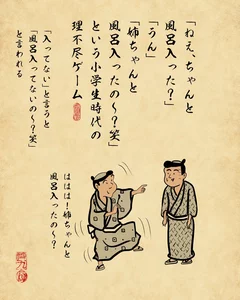 「ねえ、ちゃんと
風呂入った?」
「うん」
「姉ちゃんと
風呂入ったの〜?笑」
という小学生時代の
理不尽ゲーム
「入ってない」と言うと
「風呂入ってないの〜?笑」
と言われる
ははは!姉ちゃんと
風呂入ったの〜?